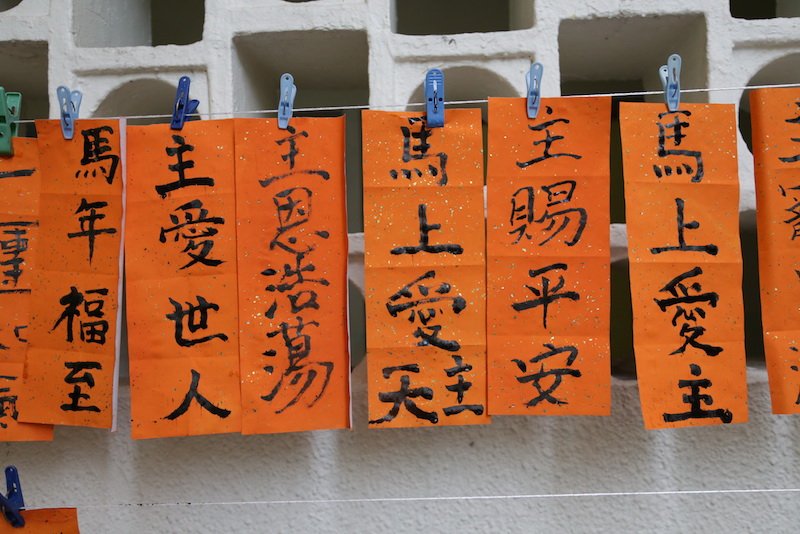 馬年福至
主愛世人
主恩浩蕩
馬上愛天主
主賜平安
馬上愛主